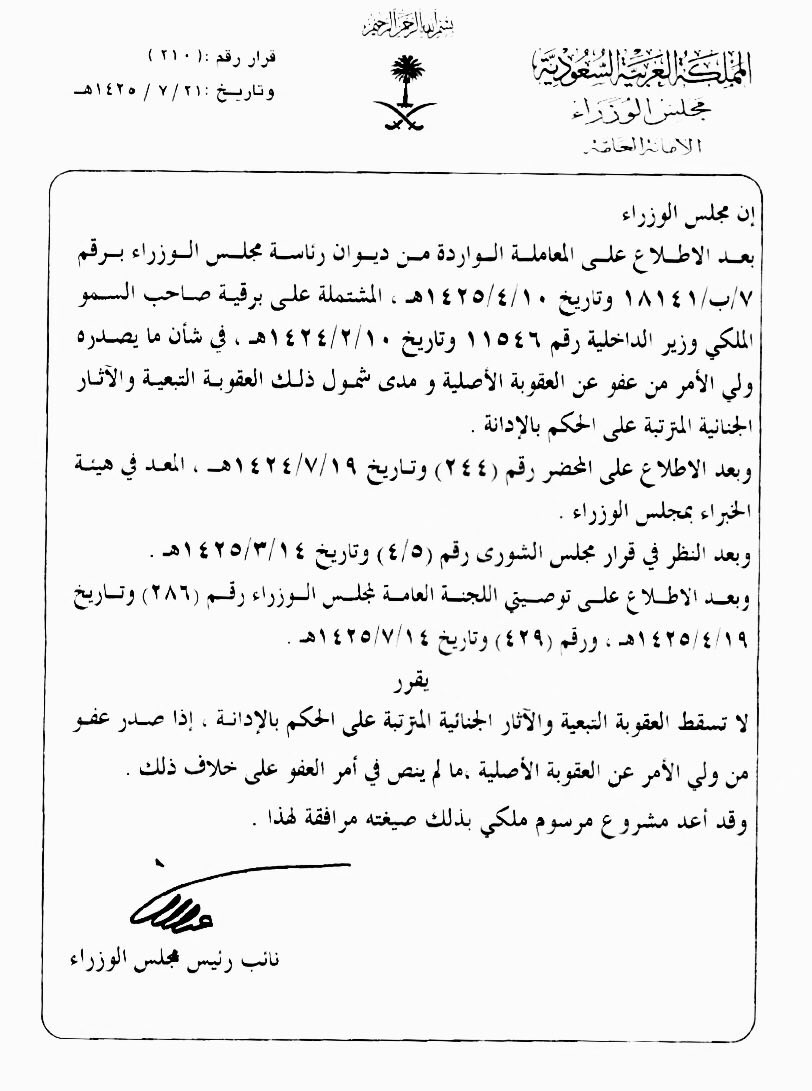 بسم الله الرحمن الرحيم
المملكة العربية السعودية
مجلس الوزراء
الأمانة العامة
قرار رقم : ( ٢١٠ )
وتاريخ : ١٤٢٥ / ٧ / ٢١هـ
إن مجلس الوزراء
بعد الاطلاع على المعاملة الواردة من ديوان رئاسة مجلس الوزراء برقم
٧/ب/١٨١٤١ وتاريخ ١٤٢٥/٤/١٠هـ ، المشتملة على برقية صاحب السمو
الملكي وزير الداخلية رقم ١١٥٤٦ وتاريخ ١٤٢٤/٢/١٠هـ ، في شأن ما يصدره
ولي الأمر من عفو عن العقوبة الأصلية و مدى شمول ذلك العقوبة التبعية والآثار
الجنائية المترتبة على الحكم بالإدانة .
وبعد الاطلاع على المحضر رقم (٢٤٤) وتاريخ ١٤٢٤/٧/١٩هـ ، المعد في هيئة
الخبراء بمجلس الوزراء .
وبعد النظر في قرار مجلس الشورى رقم (٤/٥) وتاريخ ١٤٢٥/٣/١٤هـ .
وبعد الاطلاع على توصيتي اللجنة العامة لمجلس الوزراء رقم (٢٨٦) وتاريخ
١٤٢٥/٤/١٩هـ ، ورقم (٤٢٩) وتاريخ ١٤٢٥/٧/١٤هـ .
يقرر
لا تسقط العقوبة التبعية والآثار الجنائية المترتبة على الحكم بالإدانة ، إذا صدر عفو
من ولي الأمر عن العقوبة الأصلية ،ما لم ينص في أمر العفو على خلاف ذلك .
وقد أعد مشروع مرسوم ملكي بذلك صيغته مرافقة لهذا .
نائب رئيس مجلس الوزراء